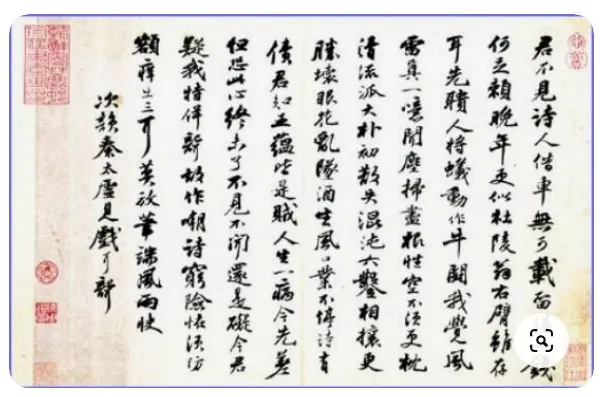 君不見詩人借車無可載留錢
何足賴晚年更似杜陵翁右臂雖存
耳先聵人將蟻動作牛鬥我覺風
雷真一噫聞塵掃盡根性空不須更枕
清流派大朴初散失混沌六鑿相攘更
勝壞眼花亂墜酒生風口業不停詩有
債君知五蘊皆是賊人生一病今先差
但恐此心終未了不見不聞還是礙今君
疑我特佯聾故作嘲詩窮險怪須防
額癢出三耳莫放筆端風雨快
次韻秦太虛見戲耳聾